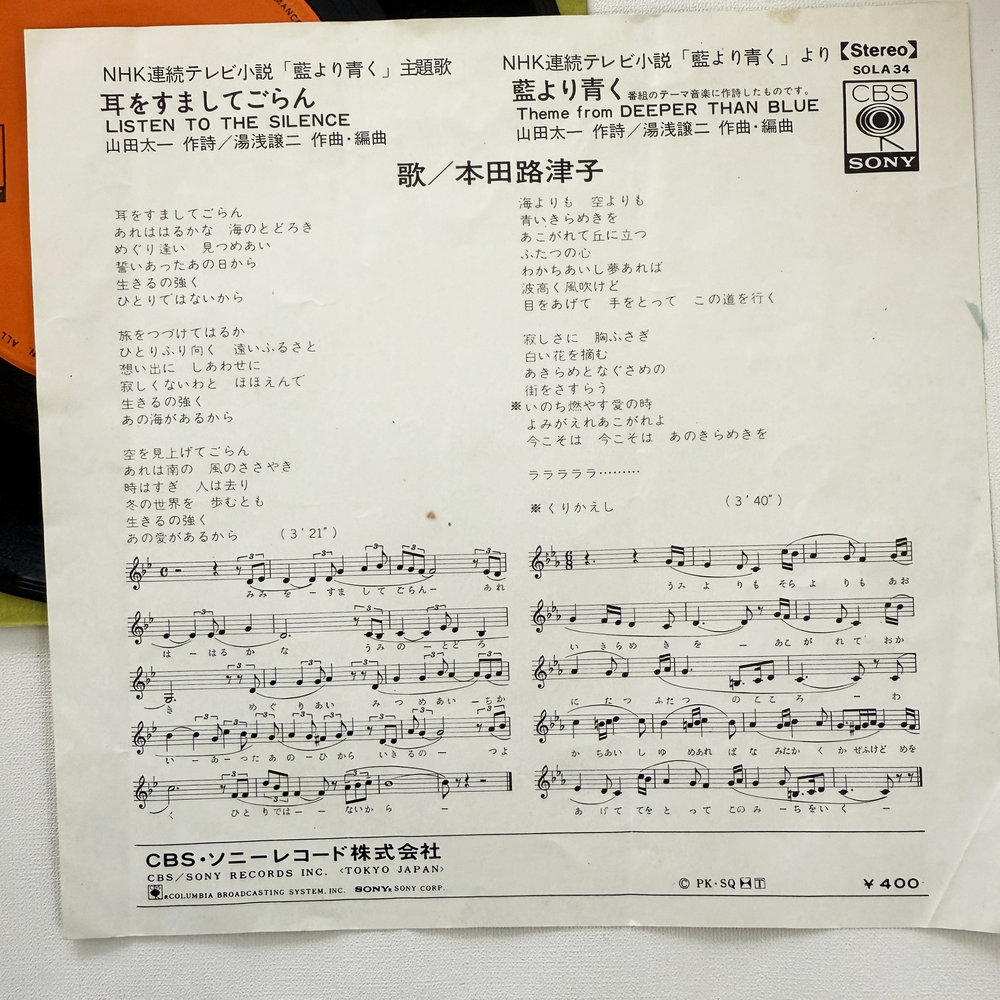 NHK連続テレビ小説「藍より青く」主題歌
耳をすましてごらん
LISTEN TO THE SILENCE
山田太一 作詩／湯浅譲二 作曲・編曲
NHK連続テレビ小説「藍より青く」より
【Stereo】
SOLA 34
藍より青く 番組のテーマ音楽に作詩したものです。
Theme from DEEPER THAN BLUE
山田太一 作詩／湯浅譲二 作曲・編曲
CBS
SONY
歌／本田路津子
耳をすましてごらん
あれははるかな　海のとどろき
めぐり逢い　見つめあい
誓いあったあの日から
生きるの強く
ひとりではないから
旅をつづけてはるか
ひとりふり向く　遠いふるさと
想い出に　しあわせに
寂しくないわと　ほほえんで
生きるの強く
あの海があるから
空を見上げてごらん
あれは南の　風のささやき
時はすぎ　人は去り
冬の世界を　歩むとも
生きるの強く
あの愛があるから　（3′21″）
海よりも　空よりも
青いきらめきを
あこがれて丘に立つ
ふたつの心
わかちあいし夢あれば
波高く風吹けど
目をあげて　手をとって　この道を行く
寂しさに　胸ふさぎ
白い花を摘む
あきらめとなぐさめの
街をさすらう
※いのち燃やす愛の時
よみがえれあこがれよ
今こそは　今こそは　あのきらめきを
ララララララ………
※くりかえし　（3′40″）
みみ を ー すま し て ごらんー あれ
は ー はる か な うみ の ー とど ろ
き めぐ り あい み つ めあい ー ちか
い ー あ ー っ た あ の ー ひ から い き る の ー つよ
く ひと り では ー ない か ら ー ー
うみ よ り も そら よ り も あお
い き ら め き を ー あこ が れ て お か
に た つ ふた つ の こ こ ろ ー わ
か ちあい し ゆ めあれ ば な みたか く か ぜふけど めを
あ げ て て を と っ て この み ー ち を い く ー
CBS・ソニーレコード株式会社
CBS/SONY RECORDS INC. 〈TOKYO JAPAN〉
®COLUMBIA BROADCASTING SYSTEM, INC. SONY® SONY CORP.
Ⓒ PK・SQ T
￥400